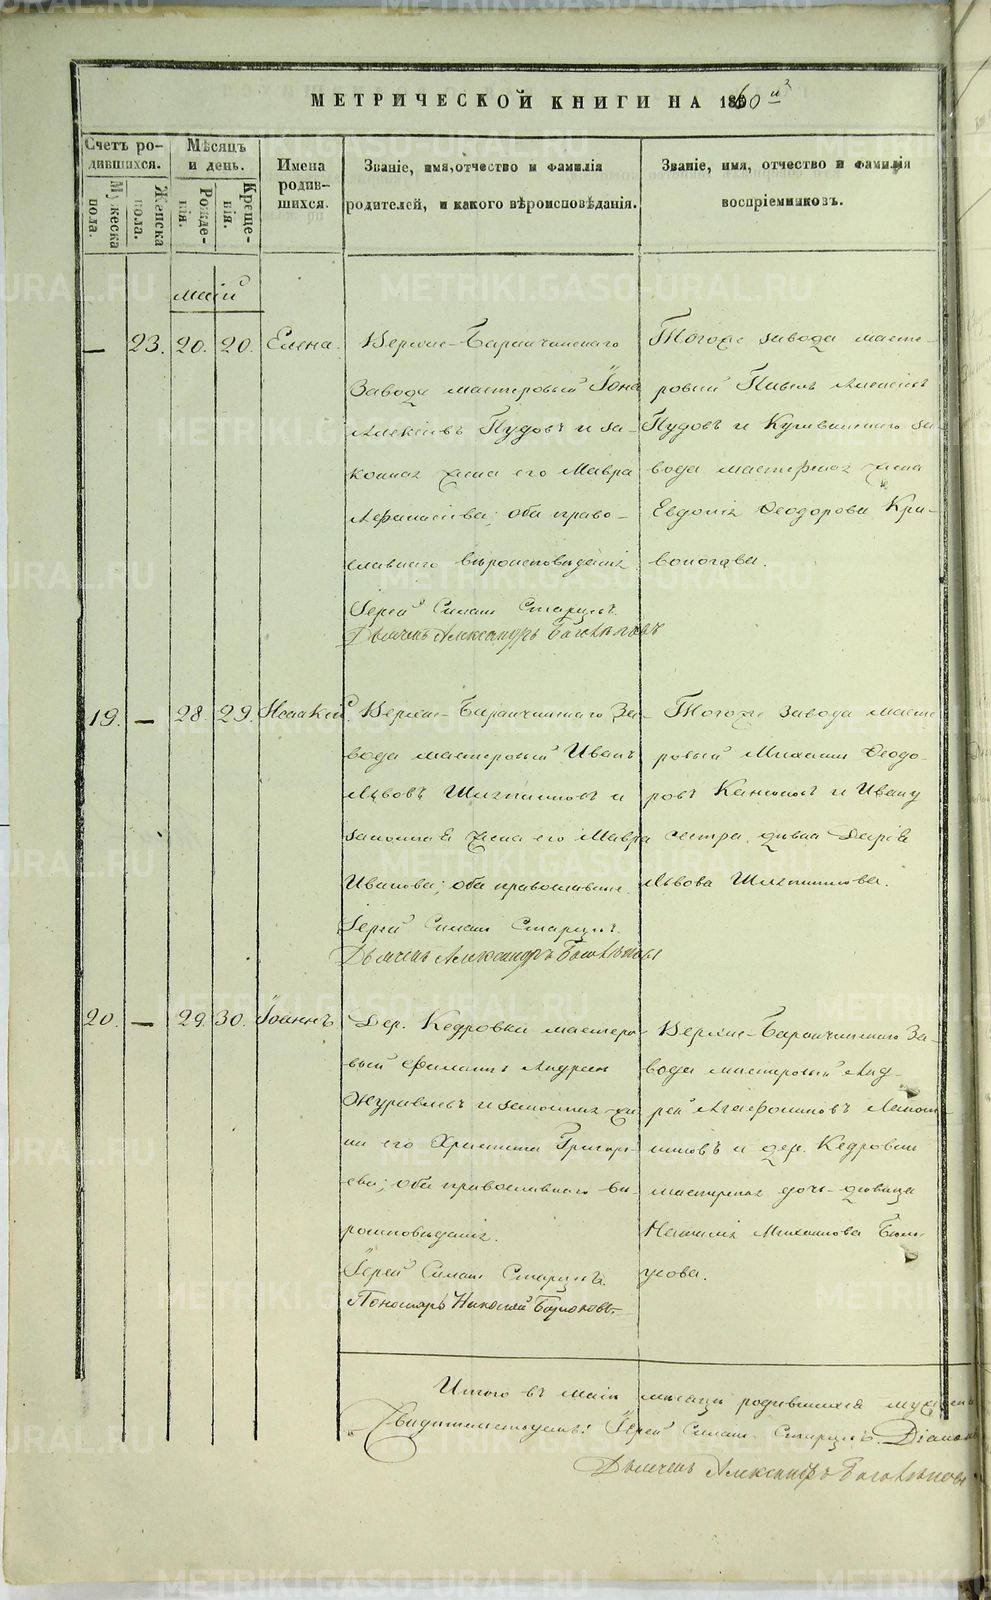 МЕТРИЧЕСКОЙ КНИГИ НА 1860 й
Счетъ родившихся.
Мужеска пола.
Женска пола.
Мѣсяцъ и день.
Рожденія.
Крещенія.
Имена родившихся.
Званіе, имя, отчество и фамилія
родителей, и какого вѣроисповѣданія.
Званіе, имя, отчество и фамилія
воспріемниковъ.
маій
— 23. 20. 20. Елена.
Верхне-Баранчинскаго
Завода мастеровый Іона
Алексѣевъ Пудовъ и за-
конная жена его Мавра
Афанасіева; оба право-
славнаго вѣроисповѣданія.
Іерей Симеон Старцевъ.
Дьячекъ Александръ
Тогоже завода масте-
ровый Павелъ Алексѣевъ
Пудовъ и Кушвинскаго за-
вода мастерская жена
Евдокія Ѳеодорова Кри-
воногова.
19. — 28. 29. Исаакій
Верхне-Баранчинскаго За-
вода мастеровый Иванъ
Львовъ и
законная жена его Мавра
Иванова; оба православные.
Іерей Симеон Старцевъ.
Дьячекъ Александръ
Тогоже завода масте-
ровый Михаилъ Ѳеодо-
ровъ и Ивану
сестра, дѣвица Дарія
Львова
20. — 29. 30. Іоаннъ
Дер. Кедровки мастеро-
вый Филиппъ Андреевъ
Журавлевъ и законная же-
на его Христина Григорь-
ева; оба православнаго вѣ-
роисповѣданія.
Іерей Симеон Старцевъ.
Пономарь Николай
Верхне-Баранчинскаго За-
вода мастеровый Анд-
рей Агафоновъ
и дер. Кедровки
мастерская дочь дѣвица
Наталія Михаилова
Итого въ маіи мѣсяцѣ родившихся
Свидѣтельствуемъ: Іерей Симеон Старцевъ. Діаконъ
Дьячекъ Александръ
METRIKI.GASO-URAL.RU